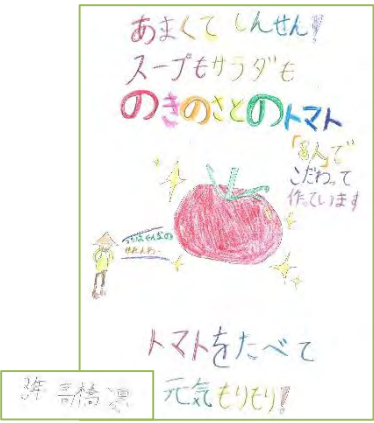 あまくて しんせん!
スープもサラダも
のきのさとのトマト
「8人」で
こだわって
作っています
トマトをたべて
元気もりもり!
3年 高橋 凛